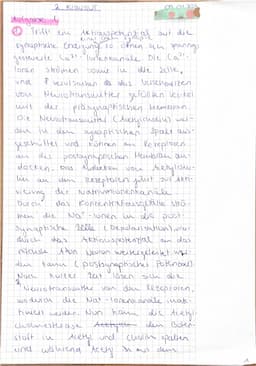 2. Klausur
Aufgabe 1
1 Trifft ein Aktionspotential auf die
synaptische Endigung so öffnen sich spannungs
gesteuerte Ca²⁺-Ionenkanäle. Die Ca²⁺-
Ionen strömen sowie in die Zelle,
und das Verschmelzen
von Neurotransmitter gefüllten Vesikel
mit der präsynaptischen Membran.
Die Neurotransmitter (Acetylcholin) wer-
den in den synaptischen Spalt aus-
geschüttet und können an Rezeptoren
an der postsynaptischen Membran an-
docken. Das Andocken von Acetylcho-
lin an den Rezeptoren führt zur Akti-
vierung der Natriumionenkanäle.
Durch das Konzentrationsgefälle strö-
men die Na⁺-Ionen in die post-
synaptische Zelle (Depolarisation)
durch das Aktionspotential an das
Axon weitergeleitet
den kann (postsynaptisches Potenzial)
Nach kurzer Zeit lösen sich die
Neurotransmitter von den Rezeptoren,
wodurch die Na⁺-Ionenkanäle inak-
tiviert werden. Nun kann die Acetyl-
cholinesterase den Boten-
stoff in Acetyl und Cholin spalten
und während Acetyl in mit dem